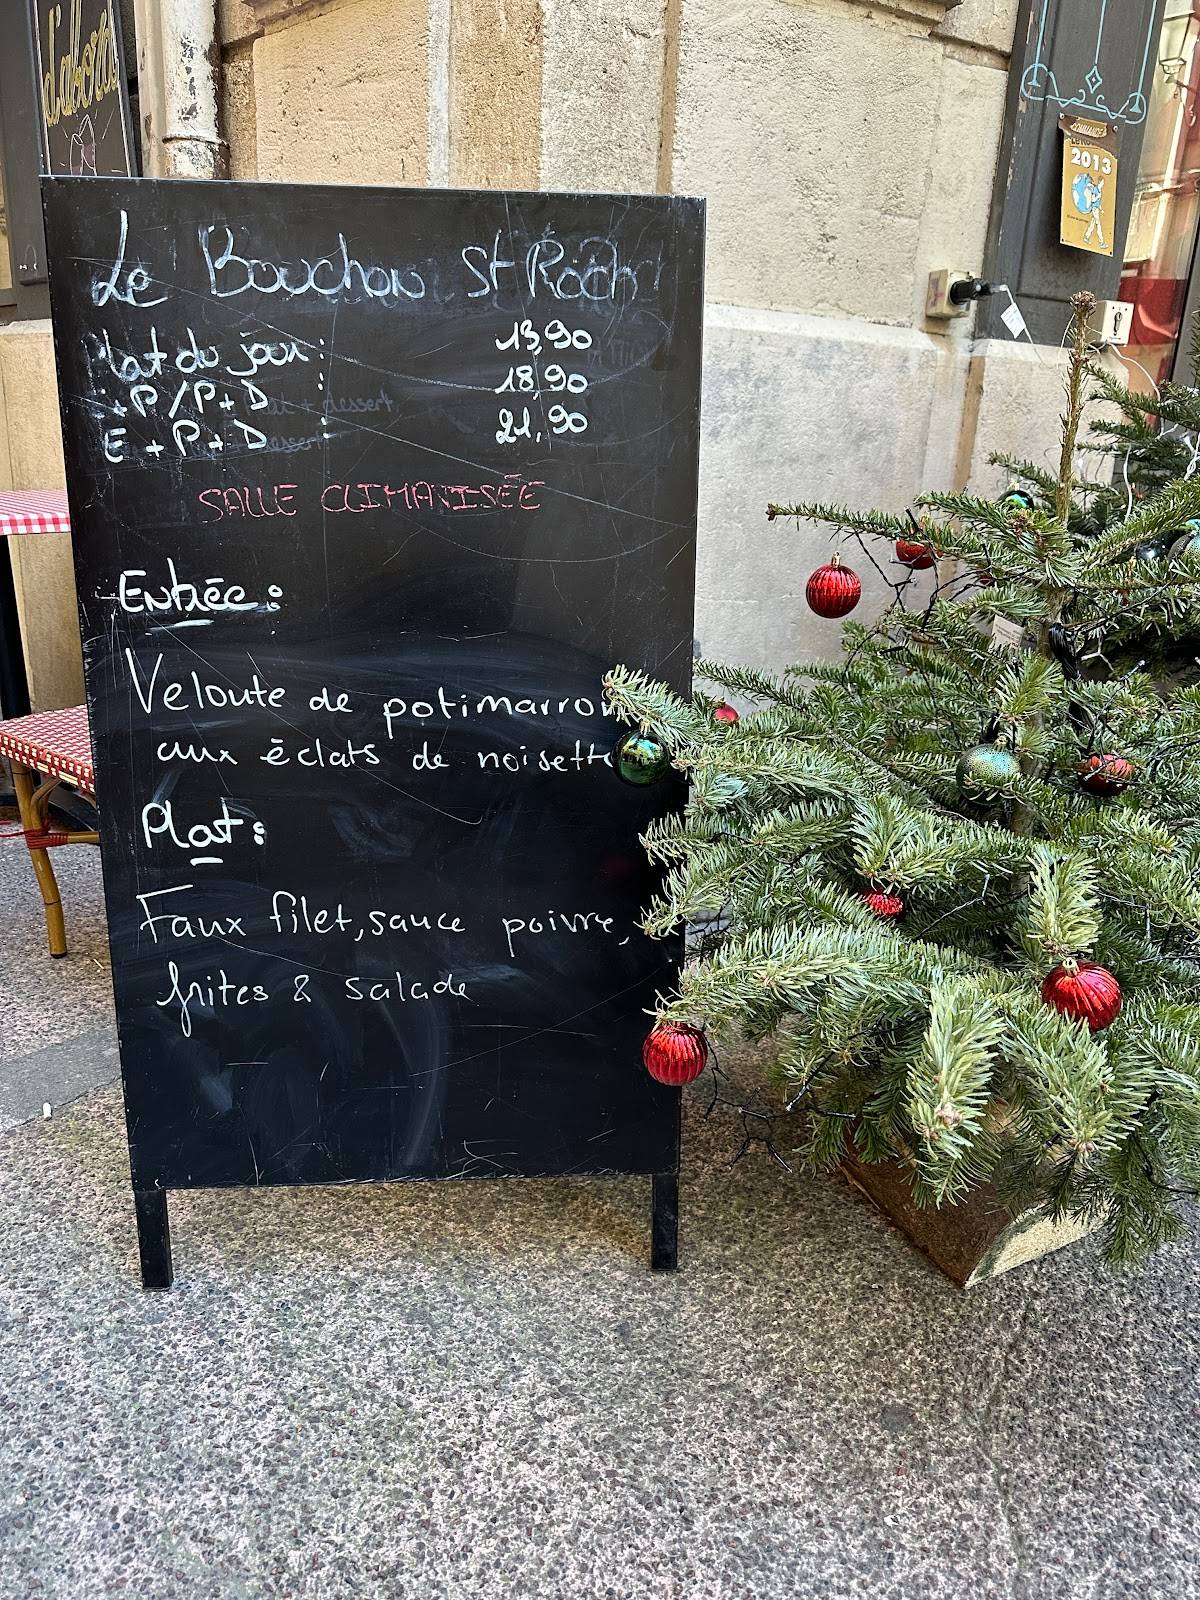 d'abord
COMMANDE
2013
Le Bouchon St Roch
Plat du jour : 13,90
E+P / P+D : 18,90
E + P + D : 21,90
SALLE CLIMATISÉE
Entrée :
Velouté de potimarron
aux éclats de noisette
Plat :
Faux filet, sauce poivre,
frites & salade